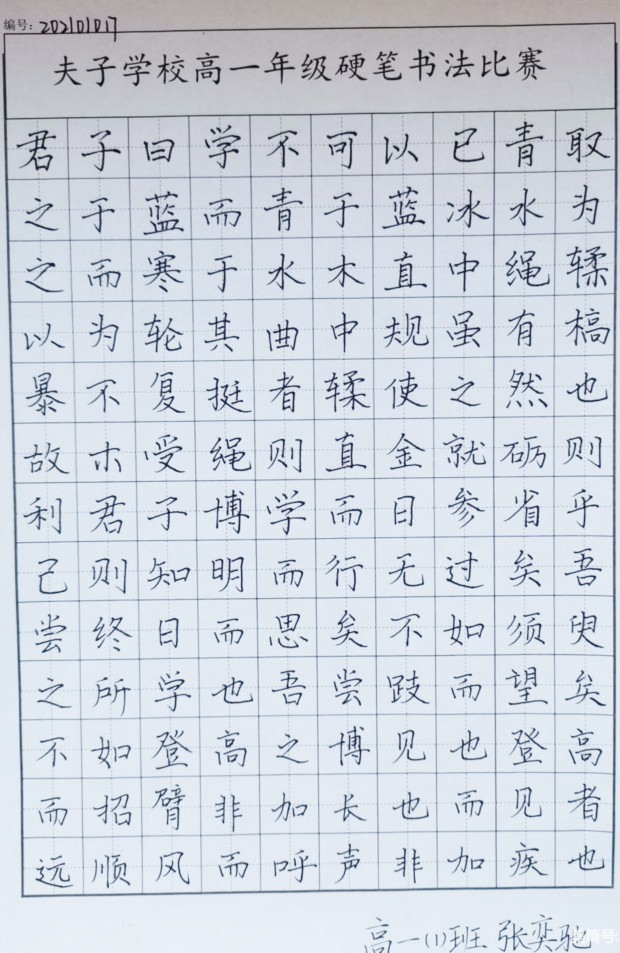 编号: 202101017
夫子学校高一年级硬笔书法比赛
君子曰学不可以已青取
之于蓝而青于蓝冰水为
之而寒于水木直中绳輮
以为轮其曲中规虽有槁
暴不复挺者輮使之然也
故木受绳则直金就砺则
利君子博学而日参省乎
己则知明而行无过矣吾
尝终日而思矣不如须臾
之所学也吾尝跂而望矣
不如登高之博见也登高
而招臂非加长也而见者
远顺风而呼声非加疾也
高一(1)班 张奕驰